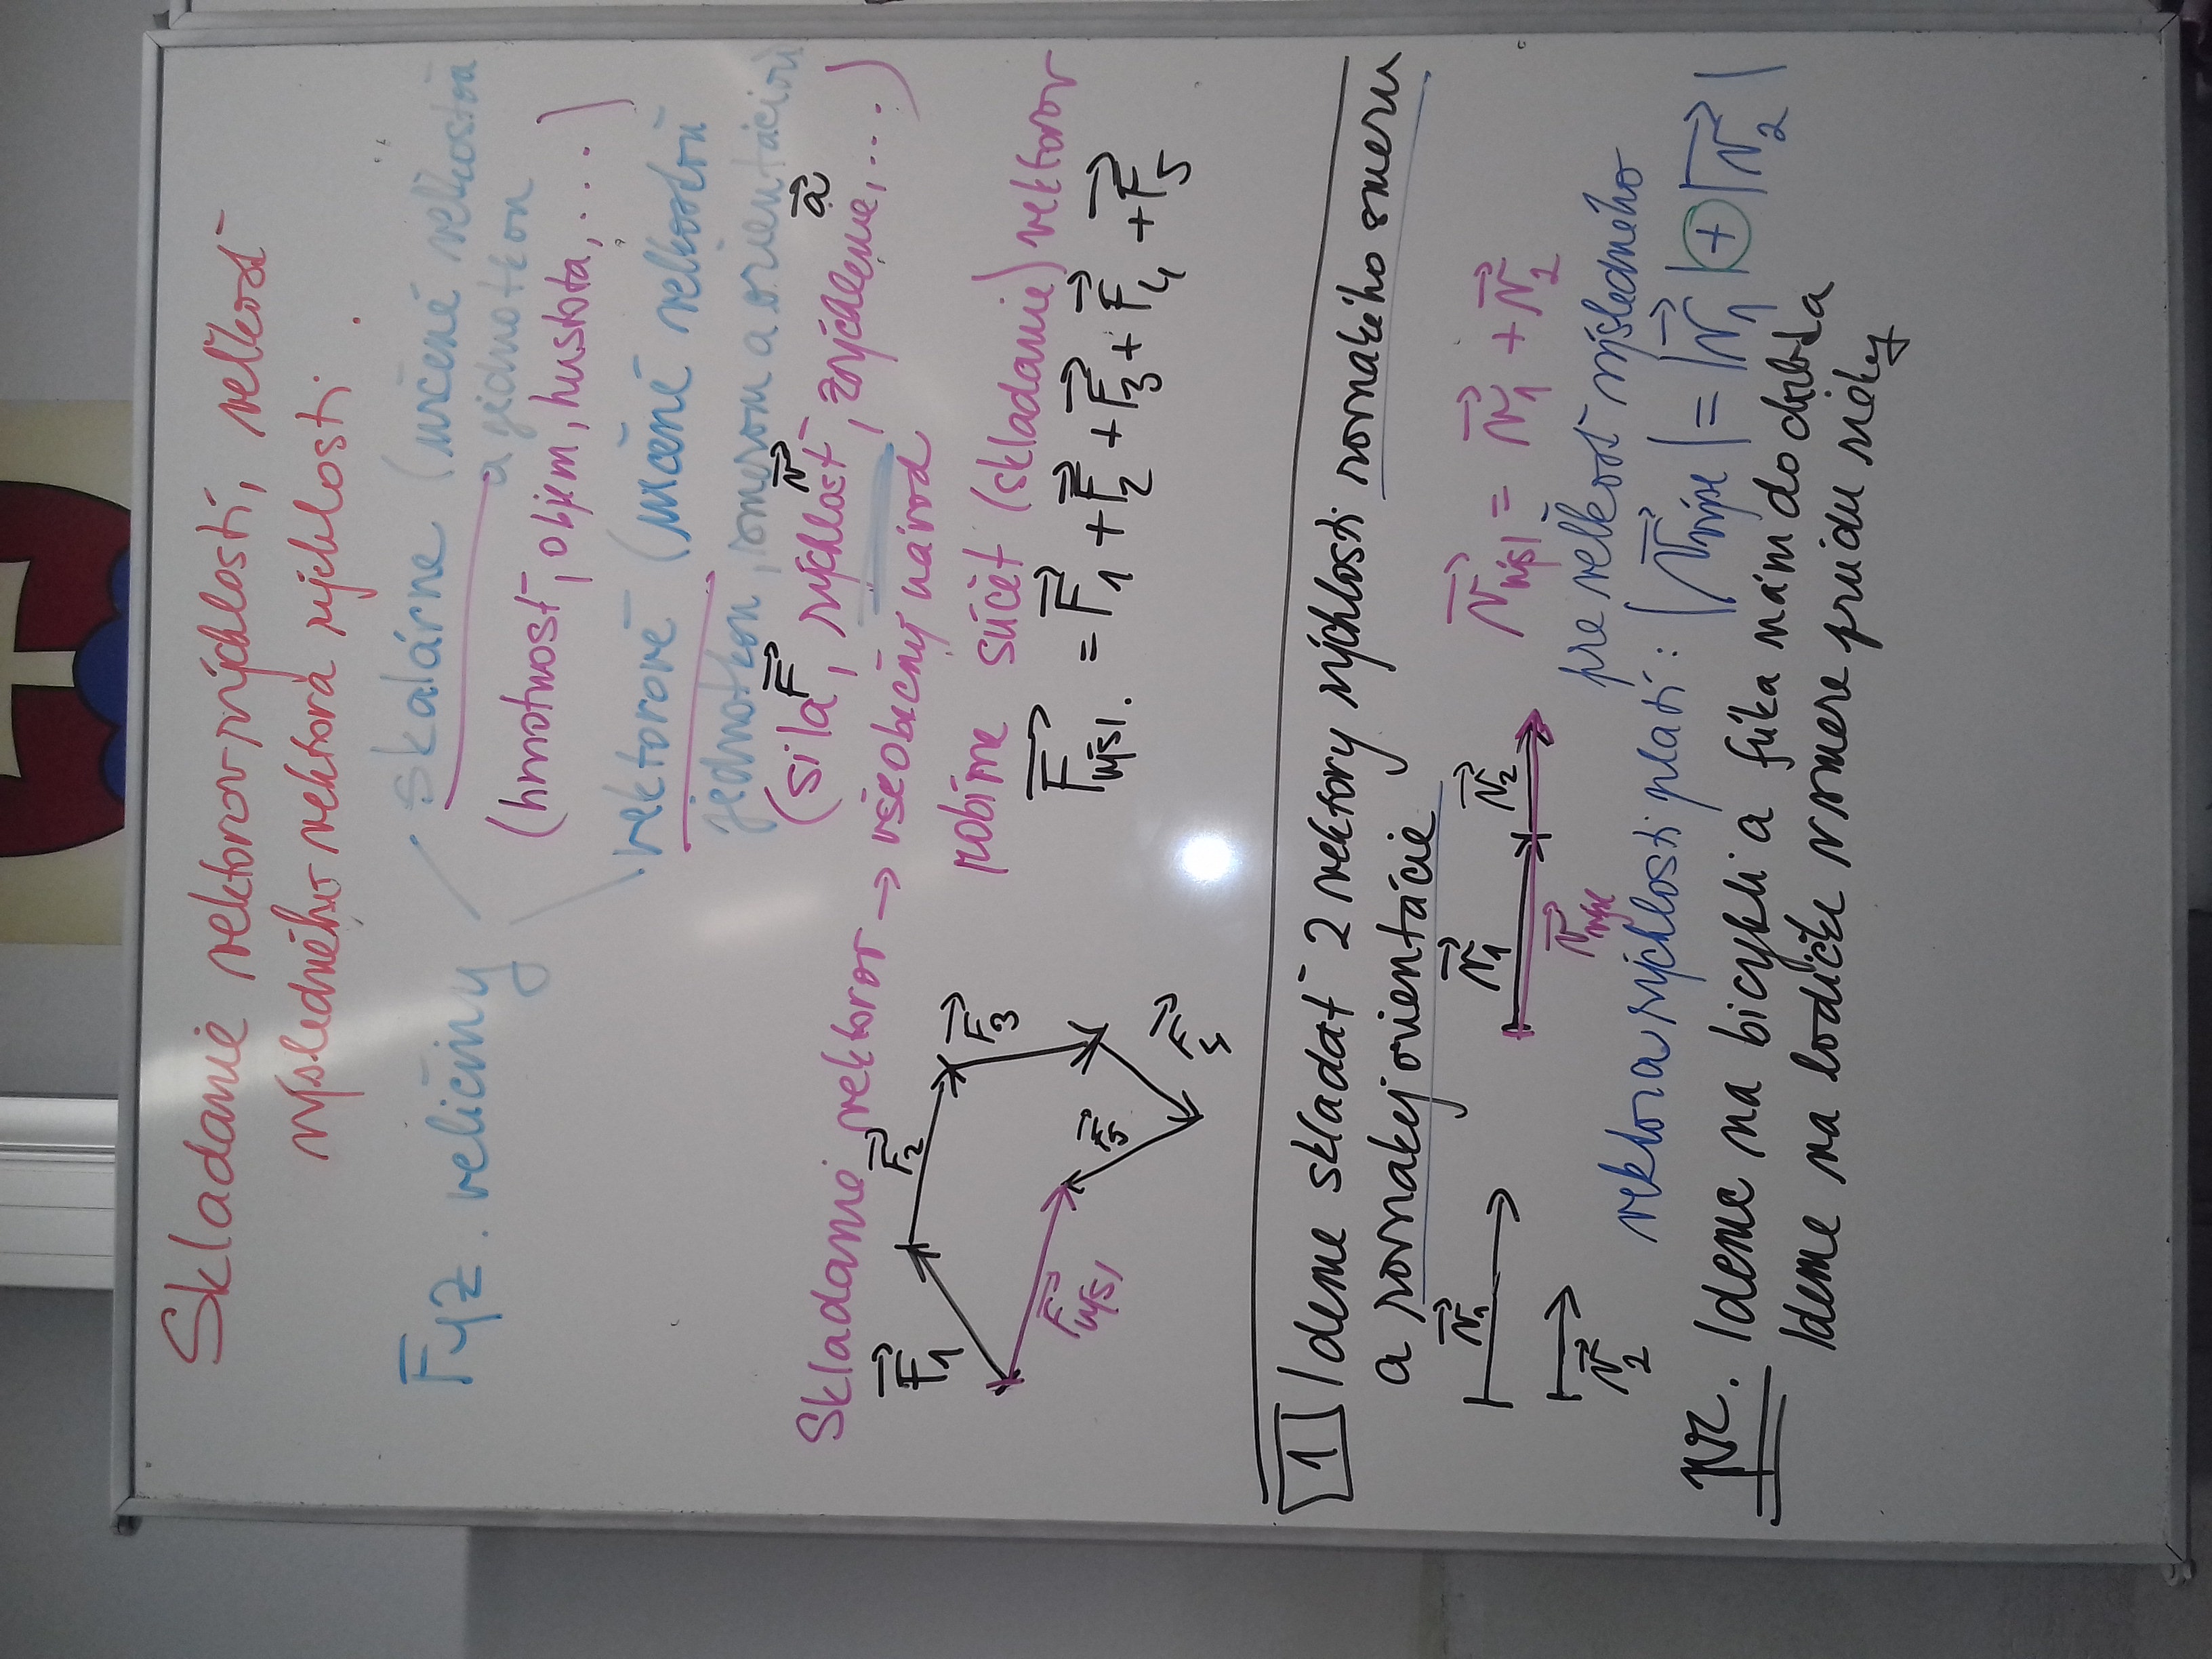 Skladanie vektorov rýchlostí, veľkosť
výsledného vektora rýchlosti.
Fyz. veličiny
skalárne (určené veľkosťou
a jednotkou
(hmotnosť, objem, hustota, ....)
vektorové (určené veľkosťou
jednotkou, smerom a orientáciou
(sila F, rýchlosť v, zrýchlenie a, ...)
Skladanie vektorov → všeobecný návod
robíme súčet (skladanie) vektorov
F1 F2 F3 F5 F5 Fvýsl
Fvýsl. = F1 + F2 + F3 + F4 + F5
1 Ideme skladať 2 vektory rýchlosti rovnakého smeru
a rovnakej orientácie
v1 v1 v2 vvýsl = v1 + v2
v2 vvýsl pre veľkosť výsledného
vektora rýchlosti platí: |vvýsl| = |v1| + |v2|
Pr. Ideme na bicykli a fúka nám do chrbta
Ideme na lodičke v smere prúdu rieky